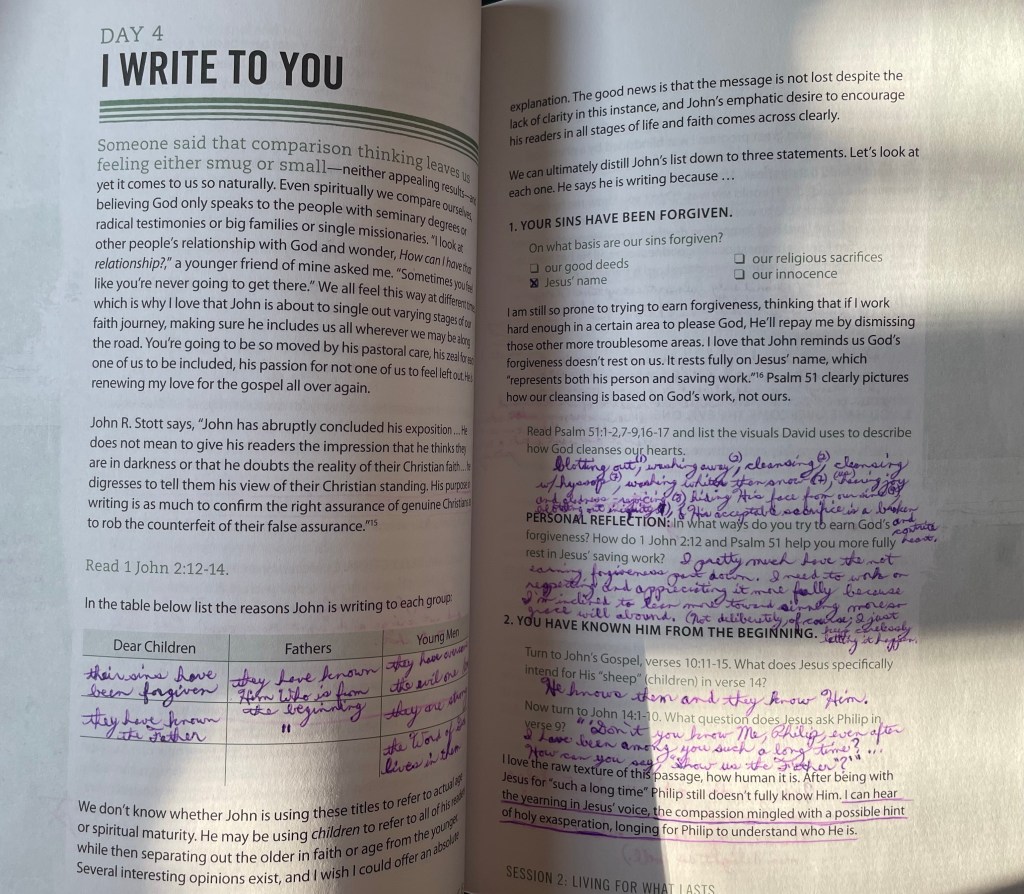 DAY 4
I WRITE TO YOU
Someone said that comparison thinking leaves us
feeling either smug or small—neither appealing results—
yet it comes to us so naturally. Even spiritually we compare ourselves,
believing God only speaks to the people with seminary degrees or
radical testimonies or big families or single missionaries. "I look at
other people's relationship with God and wonder, How can I have that
relationship?," a younger friend of mine asked me. "Sometimes you feel
like you're never going to get there." We all feel this way at different
which is why I love that John is about to single out varying stages of our
faith journey, making sure he includes us all wherever we may be along
the road. You're going to be so moved by his pastoral care, his zeal for
one of us to be included, his passion for not one of us to feel left out.
renewing my love for the gospel all over again.
John R. Stott says, "John has abruptly concluded his exposition ... He
does not mean to give his readers the impression that he thinks they
are in darkness or that he doubts the reality of their Christian faith...
digresses to tell them his view of their Christian standing. His purpose
writing is as much to confirm the right assurance of genuine
to rob the counterfeit of their false assurance."15
Read 1 John 2:12-14.
In the table below list the reasons John is writing to each group:
Dear Children Fathers Young Men
their sins have been forgiven
they have known the Father
they have known Him Who is from the beginning
"
they have
the evil one
they are
the Word of
lives in them
We don't know whether John is using these titles to refer to actual age
or spiritual maturity. He may be using children to refer to all of his
while then separating out the older in faith or age from the younger.
Several interesting opinions exist, and I wish I could offer an absolute
explanation. The good news is that the message is not lost despite the
lack of clarity in this instance, and John's emphatic desire to encourage
his readers in all stages of life and faith comes across clearly.
We can ultimately distill John's list down to three statements. Let's look at
each one. He says he is writing because ...
1. YOUR SINS HAVE BEEN FORGIVEN.
On what basis are our sins forgiven?
our good deeds our religious sacrifices
Jesus' name our innocence
I am still so prone to trying to earn forgiveness, thinking that if I work
hard enough in a certain area to please God, He'll repay me by dismissing
those other more troublesome areas. I love that John reminds us God's
forgiveness doesn't rest on us. It rests fully on Jesus' name, which
"represents both his person and saving work."16 Psalm 51 clearly pictures
how our cleansing is based on God's work, not ours.
Read Psalm 51:1-2,7-9,16-17 and list the visuals David uses to describe
how God cleanses our hearts.
blotting out (1), washing away (2), cleansing (2), cleansing
w/hyssop (7), washing whiter than snow (7), hearing joy
and gladness - rejoicing (8) hiding His face from
His acceptable sacrifice is a broken
and contrite heart.
PERSONAL REFLECTION: In what ways do you try to earn God's
forgiveness? How do 1 John 2:12 and Psalm 51 help you more fully
rest in Jesus' saving work? I pretty much have the not
earning forgiveness part down. I need to work on
respecting and appreciating it more fully because
I'm inclined to lean more toward sinning more so
grace will abound. (Not deliberately, of course; I just
carelessly
letting it happen.
2. YOU HAVE KNOWN HIM FROM THE BEGINNING.
Turn to John's Gospel, verses 10:11-15. What does Jesus specifically
intend for His "sheep" (children) in verse 14?
He knows them and they know Him.
Now turn to John 14:1-10. What question does Jesus ask Philip in
verse 9? "Don't you know Me, Philip, even after
I have been among you such a long time? ...
How can you say, 'Show us the Father'?"
I love the raw texture of this passage, how human it is. After being with
Jesus for "such a long time" Philip still doesn't fully know Him. I can hear
the yearning in Jesus' voice, the compassion mingled with a possible hint
of holy exasperation, longing for Philip to understand who He is.
SESSION 2: LIVING FOR WHAT LASTS